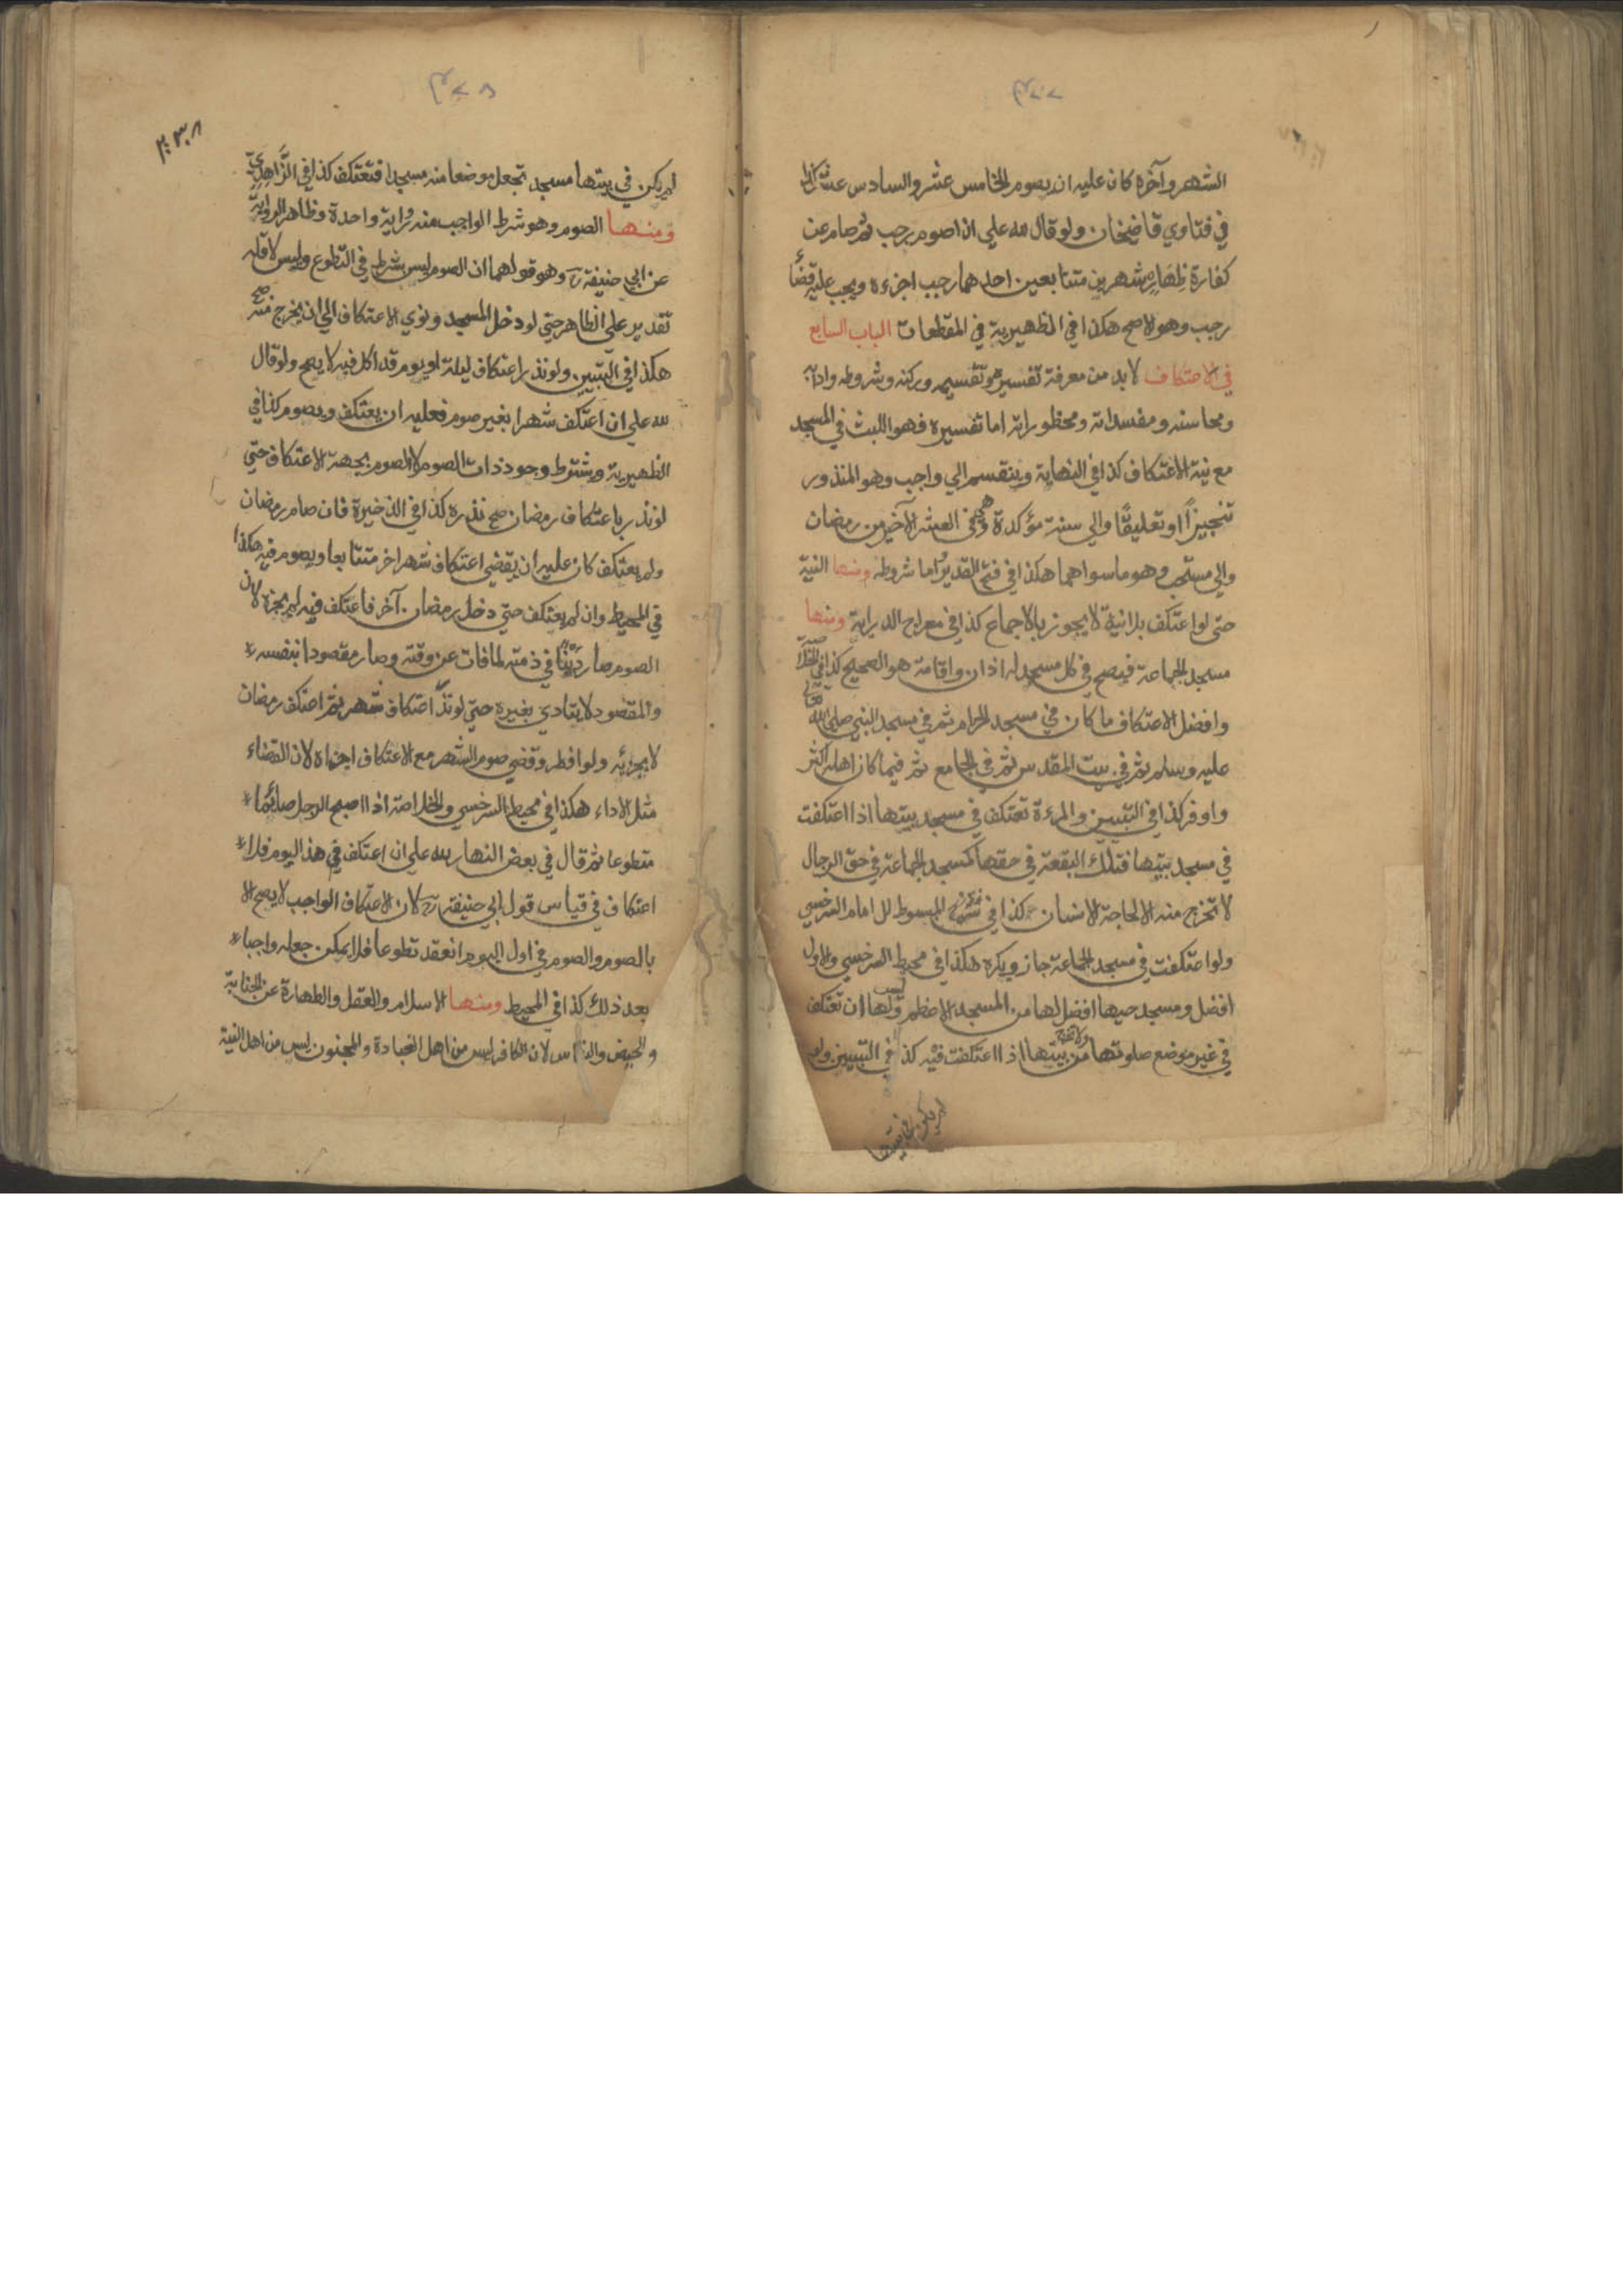 الشهر وآخره كان عليه ان يصوم الخامس عشر والسادس عشر كذا
في فتاوي قاضيخان ولو قال لله علي ان اصوم رجب ثم صام عن
كفارة ظِهَارِه شهرين متتابعين احدهما رجب اجزءه ويجب عليه قضأ
رجب وهو الاصح هكذا في الظهيرية في المقطعات الباب السابع
في الاعتكاف لابد من معرفة تفسيره وتقسيمه وركنه وشروطه وادابه
ومحاسنه ومفسداته ومحظوراته اما تفسيره فهو اللبث في المسجد
مع نية الاعتكاف كذا في النهاية وينقسم الي واجب وهو المنذور
تنجيزًا او تعليقًا والي سنة مؤكدة وهو في العشر الآخير من رمضان
والي مستحب وهو ما سواهما هكذا في فتح القدير اما شروطه ومنها النية
حتي لو اعتكف بلانية لا يجوز بالاجماع كذا في معراج الدراية ومنها
مسجد الجماعة فيصح في كل مسجد له اذان واقامة هو الصحيح كذا في الخلاصة
وافضل الاعتكاف ما كان في مسجد الحرام ثم في مسجد النبي صلي الله تعالي
عليه وسلم ثم في بيت المقدس ثم في الجامع ثم فيما كان اهله اكثر
واوفر كذا في التبيين والمرءة تعتكف في مسجد بيتها اذا اعتكفت
في مسجد بيتها فتلك البقعة في حقها كمسجد الجماعة في حق الرجال
لا تخرج منه الا لحاجة الانسان كذا في شرح المبسوط للامام السرخسي
ولو اعتكفت في مسجد الجماعة جاز ويكره هكذا في محيط السرخسي والاول
افضل ومسجد حيها افضل لها من المسجد الاعظم وليس لها ان تعتكف
في غير موضع صلوتها من بيتها ولا تخرج اذا اعتكفت فيه كذا في التبيين ولو
لم يكن في بيتها
لم يكن في بيتها مسجد تجعل موضعا منه مسجدا فتعتكف كذا في الزَّاهِدِيّ
ومنها الصوم وهو شرط الواجب منه رواية واحدة وظاهر الرواية
عن ابي حنيفة رح وهو قولهما ان الصوم ليس بشرط في التطوع وليس لاقله
تقدير علي الظاهر حتي لو دخل المسجد ونوي الاعتكاف الي ان يخرج منه صح
هكذا في التبيين ولو نذر اعتكاف ليلة او يوم قد اكل فيه لا يصح ولو قال
لله علي ان اعتكف شهرا بغير صوم فعليه ان يعتكف ويصوم كذا في
الظهيرية ويشترط وجود ذات الصوم لا الصوم بجهة الاعتكاف حتي
لو نذر باعتكاف رمضان صح نذره كذا في الذخيرة فان صام رمضان
ولم يعتكف كان عليه ان يقضي اعتكاف شهر اخر متتابعا ويصوم فيه هكذا
في المحيط وان لم يعتكف حتي دخل رمضان آخر فاعتكف فيه لم يجزه لان
الصوم صار دَيْنًا في ذمته لما فات عن وقته وصار مقصودا بنفسه
والمقصود لا يتادي بغيره حتي لو نذر اعتكاف شهر ثم اعتكف رمضان
لا يجزئه ولو افطر وقضي صوم الشهر مع الاعتكاف اجزاه لان القضاء
مثل الاداء هكذا في محيط السرخسي والخلاصة اذا اصبح الرجل صائما
متطوعا ثم قال في بعض النهار لله علي ان اعتكف في هذا اليوم فلا
اعتكاف في قياس قول ابي حنيفة رح لان الاعتكاف الواجب لا يصح الا
بالصوم والصوم في اول اليوم انعقد تطوعا فلا يمكن جعله واجبا
بعد ذلك كذا في المحيط ومنها الاسلام والعقل والطهارة عن الجنابة
والحيض والنفاس لان الكافر ليس من اهل العبادة والمجنون ليس من اهل النية